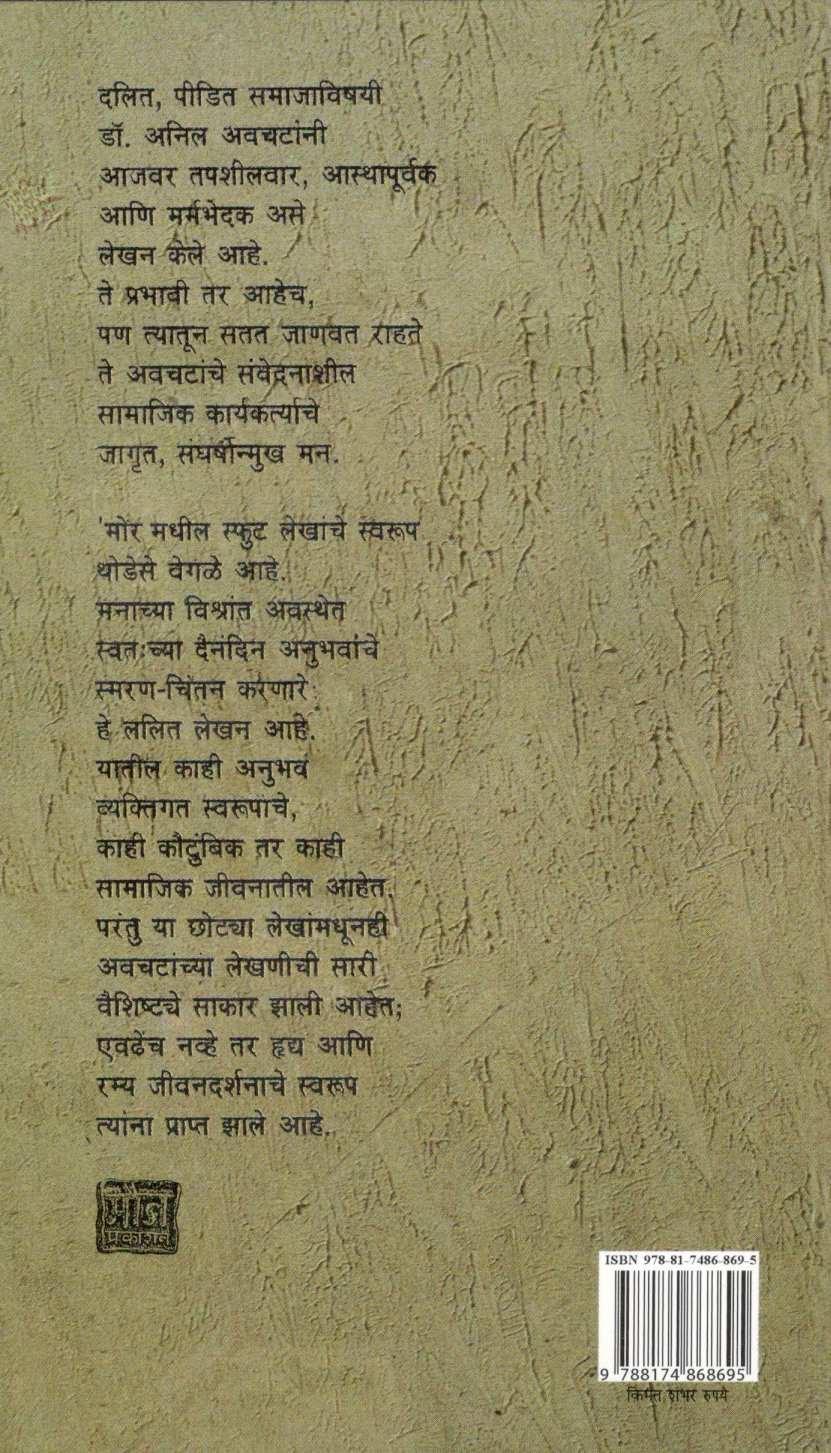 दलित, पीडित समाजाविषयी
डॉ. अनिल अवचटांनी
आजवर तपशीलवार, आस्थापूर्वक
आणि मर्मभेदक असे
लेखन केले आहे.
ते प्रभावी तर आहेच,
पण त्यातून सतत जाणवत राहते
ते अवचटांचे संवेदनाशील
सामाजिक कार्यकर्त्याचे
जागृत, संघर्षोन्मुख मन.
'मोर'मधील स्फुट लेखांचे स्वरूप
थोडेसे वेगळे आहे.
मनाच्या विश्रांत अवस्थेत
स्वतःच्या दैनंदिन अनुभवांचे
स्मरण-चिंतन करणारे
हे ललित लेखन आहे.
यातील काही अनुभव
व्यक्तिगत स्वरूपाचे,
काही कौटुंबिक तर काही
सामाजिक जीवनातील आहेत.
परंतु या छोट्या लेखांमधूनही
अवचटांच्या लेखणीची सारी
वैशिष्ट्ये साकार झाली आहेत;
एवढेंच नव्हे तर हृद्य आणि
रम्य जीवनदर्शनाचे स्वरूप
त्यांना प्राप्त झाले आहे.
मौज
प्रकाशन
ISBN 978-81-7486-869-5
9 788174 868695
किंमत शंभर रुपये